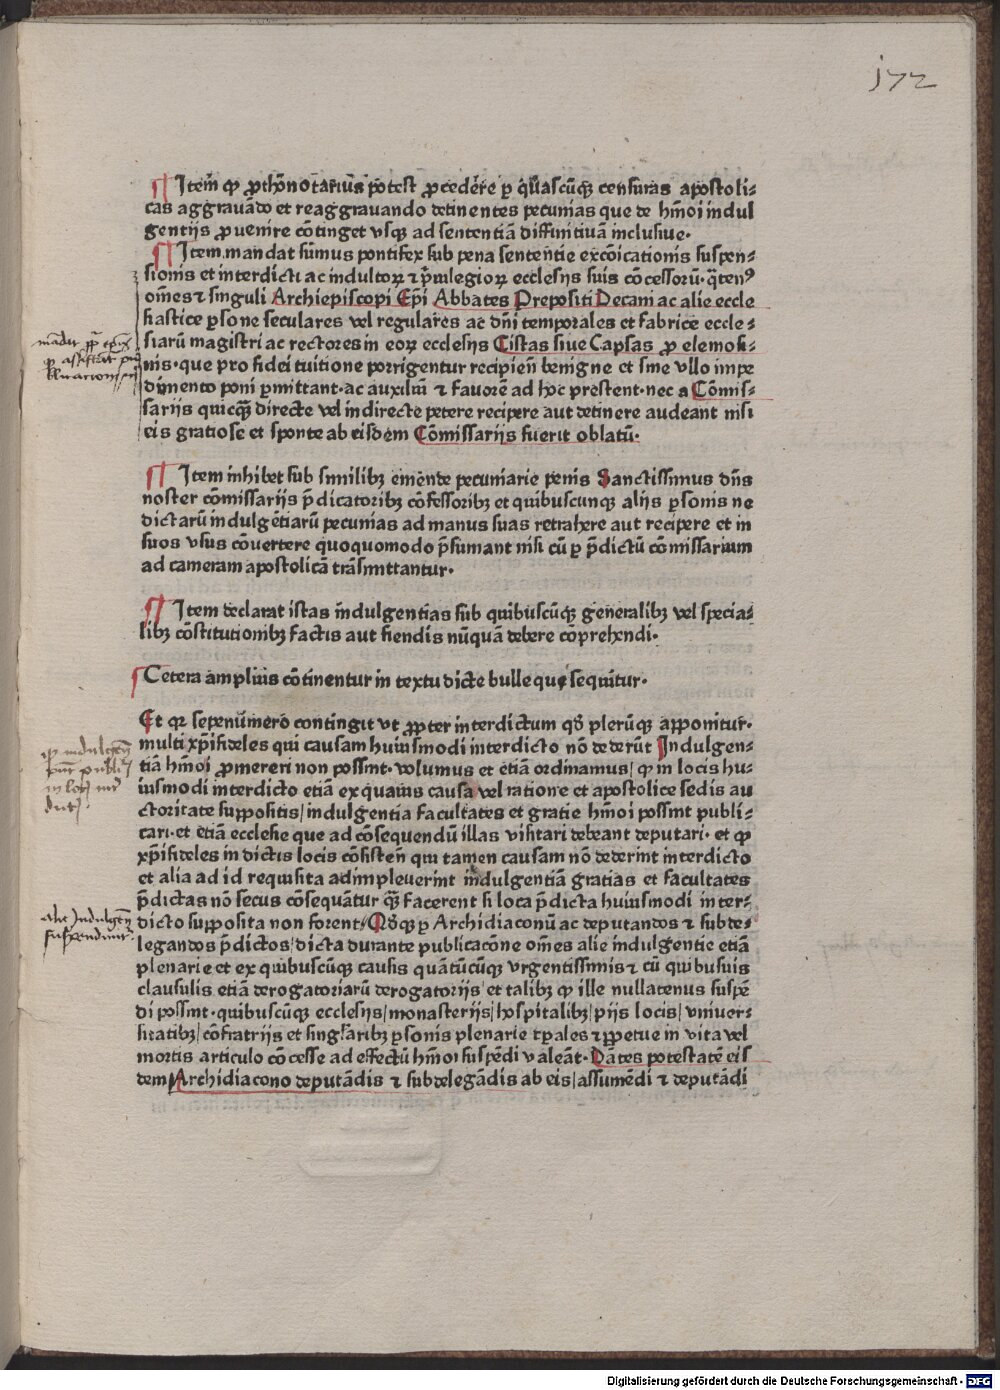 172
¶ Item ꝙ ꝓthonotarius potest ꝓcedere ꝑ quascūqꝫ censuras apostoli⸗
cas aggrauādo et reaggrauando detinentes pecunias que de hmōi indul
gentijs ꝓuenire cōtinget vsqꝫ ad sententiā diffinitiuā inclusiue·
¶ Item mandat sūmus pontifex sub pena sententie excōicationis suspen⸗
sionis et interdicti ac indultoꝝ et p̄uilegioꝝ ecclesijs suis cōcessorū· q̄tenꝰ
om̄es ⁊ singuli Archiepiscopi Ep̄i Abbates Prepositi Decani ac alie eccle
siastice ꝑsone seculares vel regulares ac dn̄i temporales et fabrice eccle⸗
siarū magistri ac rectores in eoꝝ ecclesijs Cistas siue Capsas ꝓ elemosi⸗
nis· que pro fidei tuitione porrigentur recipien̄ benigne et sine vllo impe
dimento poni ꝑmittant· ac auxiliū ⁊ fauorē ad hoc prestent· nec a Cōmis⸗
sarijs quicqꝫ directe vel indirecte petere recipere aut detinere audeant nisi
eis gratiose et sponte ab eisdem Cōmissarijs fuerit oblatū·
¶ Item inhibet sub similibꝫ emende pecuniarie penis Sanctissimus dn̄s
noster cōmissarijs p̄dicatoribꝫ cōfessoribꝫ et quibuscunqꝫ alijs ꝑsonis ne
dictarū indulgētiarū pecunias ad manus suas retrahere aut recipere et in
suos vsus cōuertere quoquomodo p̄sumant nisi cū ꝑ p̄dictū cōmissarium
ad cameram apostolicā trāsmittantur·
¶ Item declarat istas indulgentias sub quibuscūqꝫ generalibꝫ vel specia⸗
libꝫ cōstitutionibꝫ factis aut fiendis nūquā debere cōprehendi·
Cetera amplius cōtinentur in textu dicte bulle que sequitur·
Et qꝛ sepenūmero contingit vt ꝓpter interdictum qd̄ plerūqꝫ apponitur·
multi xp̄ifideles qui causam huiusmodi interdicto nō dederūt Indulgen⸗
tiā hmōi ꝓmereri non possint· volumus et etiā ordinamus/ ꝙ in locis hu⸗
iusmodi interdicto etiā ex quauis causa vel ratione et apostolice sedis au
ctoritate suppositis/ indulgentia facultates et gratie hmōi possint publi⸗
cari· et etiā ecclesie que ad cōsequendū illas visitari debeant deputari· et ꝙ
xp̄ifideles in dictis locis cōsisten̄ qui tamen causam nō dederint interdicto
et alia ad id requisita adimpleuerint indulgentiā gratias et facultates
p̄dictas nō secus cōsequātur qꝫ facerent si loca p̄dicta huiusmodi inter⸗
dicto supposita non forent/ Qd̄qꝫ ꝑ Archidiaconū ac deputandos ⁊ subde⸗
legandos p̄dictos/ dicta durante publicacōne om̄es alie indulgentie etiā
plenarie et ex quibuscūqꝫ causis quātūcūqꝫ vrgentissimis ⁊ cū quibusuis
clausulis etiā derogatoriarū derogatorijs et talibꝫ ꝙ ille nullatenus suspē
di possint· quibuscūqꝫ ecclesijs/ monasterijs/ hospitalibꝫ/ pijs locis/ vniuer⸗
sitatibꝫ/ cōfratrijs et singl̄aribꝫ ꝑsonis plenarie tꝑales ⁊ ꝑpetue in vita vel
mortis articulo cōcesse ad effectū hmōi suspēdi valeāt· Dātes potestatē eis
dem Archidiacono deputādis ⁊ subdelegādis ab eis/ assumēdi ⁊ deputādi
Digitalisierung gefördert durch die Deutsche Forschungsgemeinschaft - DFG